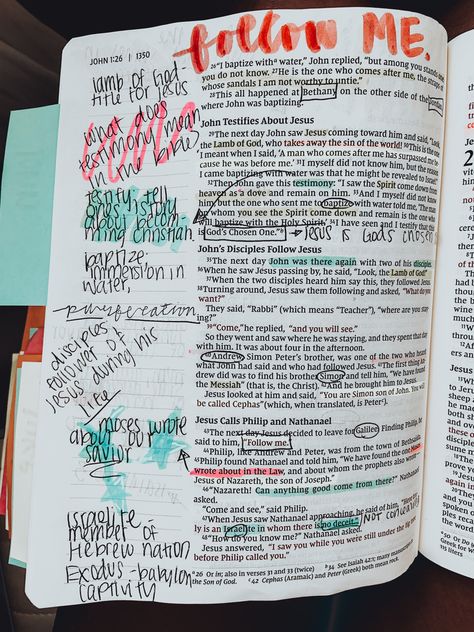 follow ME.
JOHN 1:26 | 1350
lamb of God-
title for Jesus
what does
testimony mean
in the bible?
testify: tell
ones story
about becom-
ing christian.
baptize:
immersion in
water,
purification
disciples
followed of
Jesus during his
life
moses wrote
about our
savior
Israelite -
member of
Hebrew nation
Exodus - babylon
captivity
26 "I baptize with a water," John replied, "but among you stands one
you do not know. 27 He is the one who comes after me, the straps of
whose sandals I am not worthy to untie."
28 This all happened at Bethany on the other side of the Jordan,
where John was baptizing.
John Testifies About Jesus
29 The next day John saw Jesus coming toward him and said, "Look,
the Lamb of God, who takes away the sin of the world! 30 This is the one
I meant when I said, 'A man who comes after me has surpassed me be-
cause he was before me.' 31 I myself did not know him, but the reason
I came baptizing with water was that he might be revealed to Israel."
32 Then John gave this testimony: "I saw the Spirit come down from
heaven as a dove and remain on him. 33 And I myself did not know
him, but the one who sent me to baptize with water told me, 'The man
on whom you see the Spirit come down and remain is the one who
will baptize with the Holy Spirit.' 34 I have seen and I testify that this
is God's Chosen One." b → Jesus is Gods chosen
John's Disciples Follow Jesus
35 The next day John was there again with two of his disciples.
36 When he saw Jesus passing by, he said, "Look, the Lamb of God!"
37 When the two disciples heard him say this, they followed Jesus.
38 Turning around, Jesus saw them following and asked, "What do you
want?"
They said, "Rabbi" (which means "Teacher"), "where are you stay-
ing?"
39 "Come," he replied, "and you will see."
So they went and saw where he was staying, and they spent that day
with him. It was about four in the afternoon.
40 Andrew, Simon Peter's brother, was one of the two who heard
what John had said and who had followed Jesus. 41 The first thing An-
drew did was to find his brother Simon and tell him, "We have found
the Messiah" (that is, the Christ). 42 And he brought him to Jesus.
Jesus looked at him and said, "You are Simon son of John. You will
be called Cephas" (which, when translated, is Peter c).
Jesus Calls Philip and Nathanael
43 The next day Jesus decided to leave for Galilee. Finding Philip, he
said to him, "Follow me."
44 Philip, like Andrew and Peter, was from the town of Bethsaida.
45 Philip found Nathanael and told him, "We have found the one Moses
wrote about in the Law, and about whom the prophets also wrote—
Jesus of Nazareth, the son of Joseph."
46 "Nazareth! Can anything good come from there?" Nathanael
asked.
"Come and see," said Philip.
47 When Jesus saw Nathanael approaching, he said of him, "Here tru-
ly is an Israelite in whom there is no deceit."
48 "How do you know me?" Nathanael asked.
Jesus answered, "I saw you while you were still under the fig tree
before Philip called you."
a 26 Or in; also in verses 31 and 33 (twice) b 34 See Isaiah 42:1; many manuscripts
the Son of God. c 42 Cephas (Aramaic) and Peter (Greek) both mean rock.